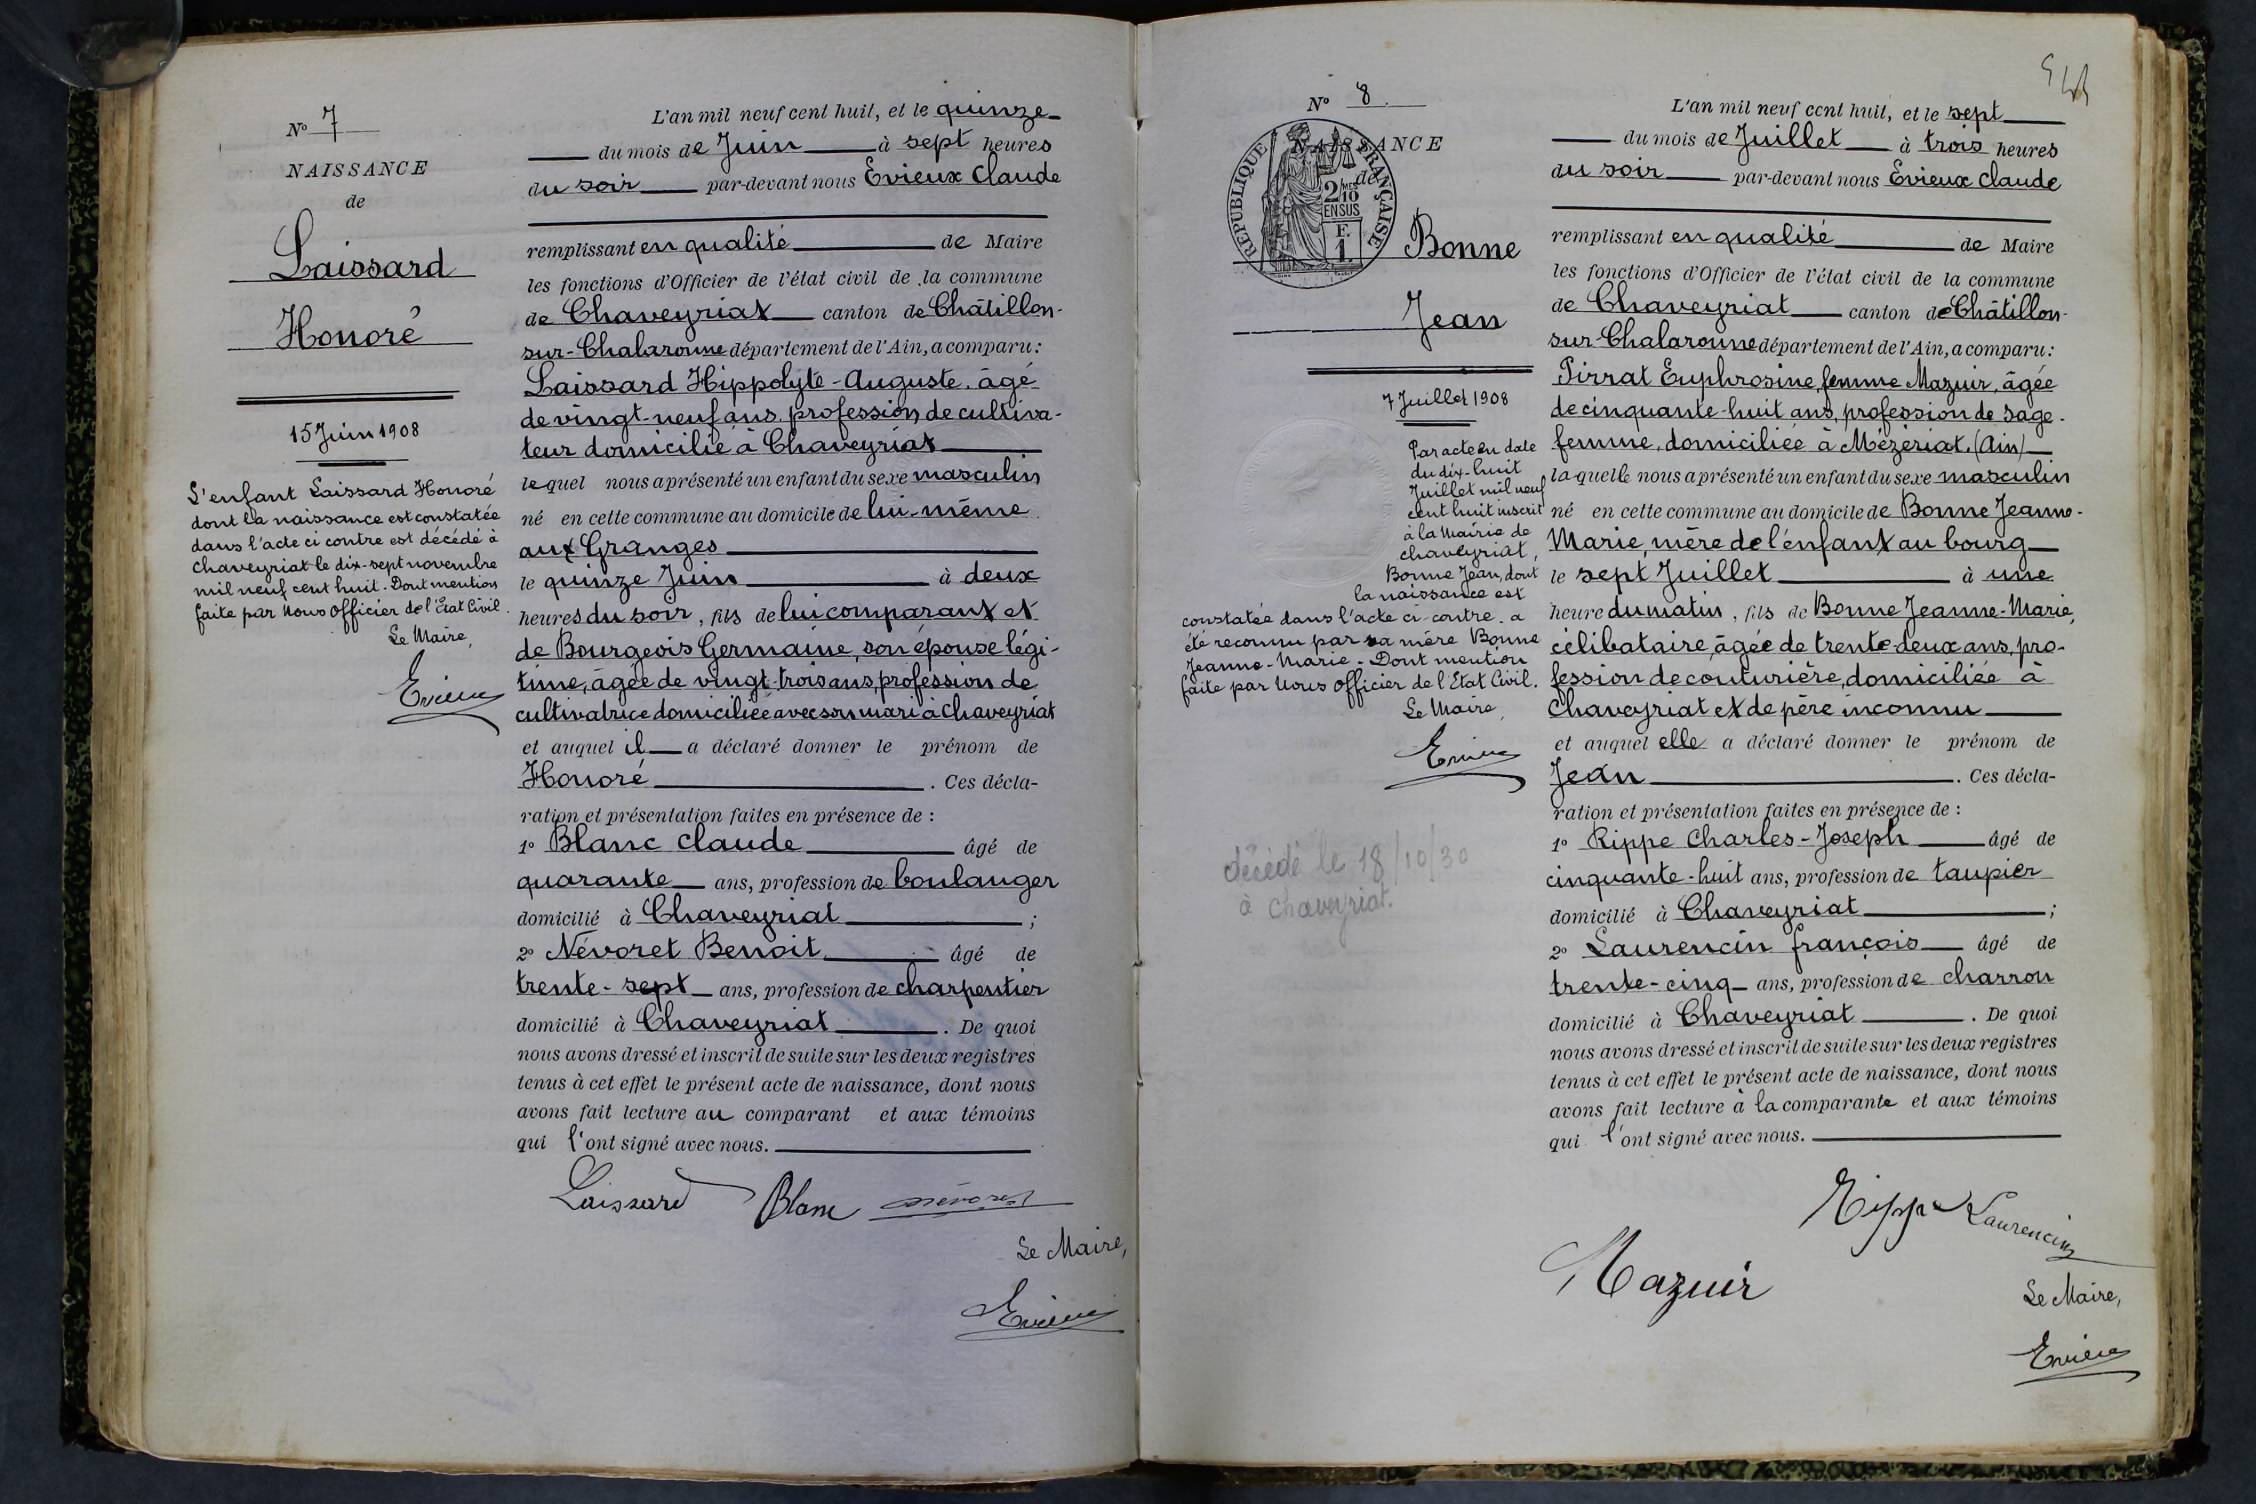 Nº 7
NAISSANCE
de
Laissard
Honoré
15 Juin 1908
L'enfant Laissard Honoré
dont la naissance est constatée
dans l'acte ci contre est décédé à
Chaveyriat le dix-sept novembre
mil neuf cent huit. Dont mention
faite par Nous Officier de l'Etat Civil.
Le Maire,
Evieux
L'an mil neuf cent huit, et le quinze
du mois de Juin à sept heures
du soir par-devant nous Evieux Claude
remplissant en qualité de Maire
les fonctions d'Officier de l'état civil de la commune
de Chaveyriat canton de Châtillon-
sur-Chalaronne département de l'Ain, a comparu:
Laissard Hippolyte-Auguste, âgé
de vingt-neuf ans, profession de cultiva-
teur domicilié à Chaveyriat
lequel nous a présenté un enfant du sexe masculin
né en cette commune au domicile de lui-même
aux Granges
le quinze Juin à deux
heures du soir, fils de lui comparant et
de Bourgeois Germaine, son épouse légi-
time, âgée de vingt-trois ans, profession de
cultivatrice domiciliée avec son mari à Chaveyriat
et auquel il a déclaré donner le prénom de
Honoré. Ces décla-
ration et présentation faites en présence de :
1º Blanc Claude âgé de
quarante ans, profession de boulanger
domicilié à Chaveyriat ;
2º Névoret Benoit âgé de
trente-sept ans, profession de charpentier
domicilié à Chaveyriat. De quoi
nous avons dressé et inscrit de suite sur les deux registres
tenus à cet effet le présent acte de naissance, dont nous
avons fait lecture au comparant et aux témoins
qui l'ont signé avec nous.
Laissard Blanc Névoret
Le Maire,
Evieux
Nº 8
NAISSANCE
de
RÉPUBLIQUE FRANÇAISE
2/10
MES
EN SUS
F.
1.
Bonne
Jean
7 Juillet 1908
Par acte en date
du dix-huit
Juillet mil neuf
cent huit inscrit
à la Mairie de
Chaveyriat,
Bonne Jean, dont
la naissance est
constatée dans l'acte ci-contre a
été reconnu par sa mère Bonne
Jeanne-Marie. Dont mention
faite par Nous Officier de l'Etat Civil.
Le Maire,
Evieux
décédé le 18/10/30
à Chaveyriat.
L'an mil neuf cent huit, et le sept
du mois de Juillet à trois heures
du soir par-devant nous Evieux Claude
remplissant en qualité de Maire
les fonctions d'Officier de l'état civil de la commune
de Chaveyriat canton de Châtillon-
sur-Chalaronne département de l'Ain, a comparu:
Pirrat Euphrosine, femme Mazuir, âgée
de cinquante-huit ans, profession de sage-
femme, domiciliée à Mézériat. (Ain)
laquelle nous a présenté un enfant du sexe masculin
né en cette commune au domicile de Bonne Jeanne-
Marie, mère de l'enfant au bourg
le sept Juillet à une
heure du matin, fils de Bonne Jeanne-Marie,
célibataire, âgée de trente-deux ans, pro-
fession de couturière, domiciliée à
Chaveyriat et de père inconnu
et auquel elle a déclaré donner le prénom de
Jean. Ces décla-
ration et présentation faites en présence de :
1º Rippe Charles-Joseph âgé de
cinquante-huit ans, profession de taupier
domicilié à Chaveyriat ;
2º Laurencin françois âgé de
trente-cinq ans, profession de charron
domicilié à Chaveyriat. De quoi
nous avons dressé et inscrit de suite sur les deux registres
tenus à cet effet le présent acte de naissance, dont nous
avons fait lecture à la comparante et aux témoins
qui l'ont signé avec nous.
Rippe Laurencin
Mazuir
Le Maire,
Evieux